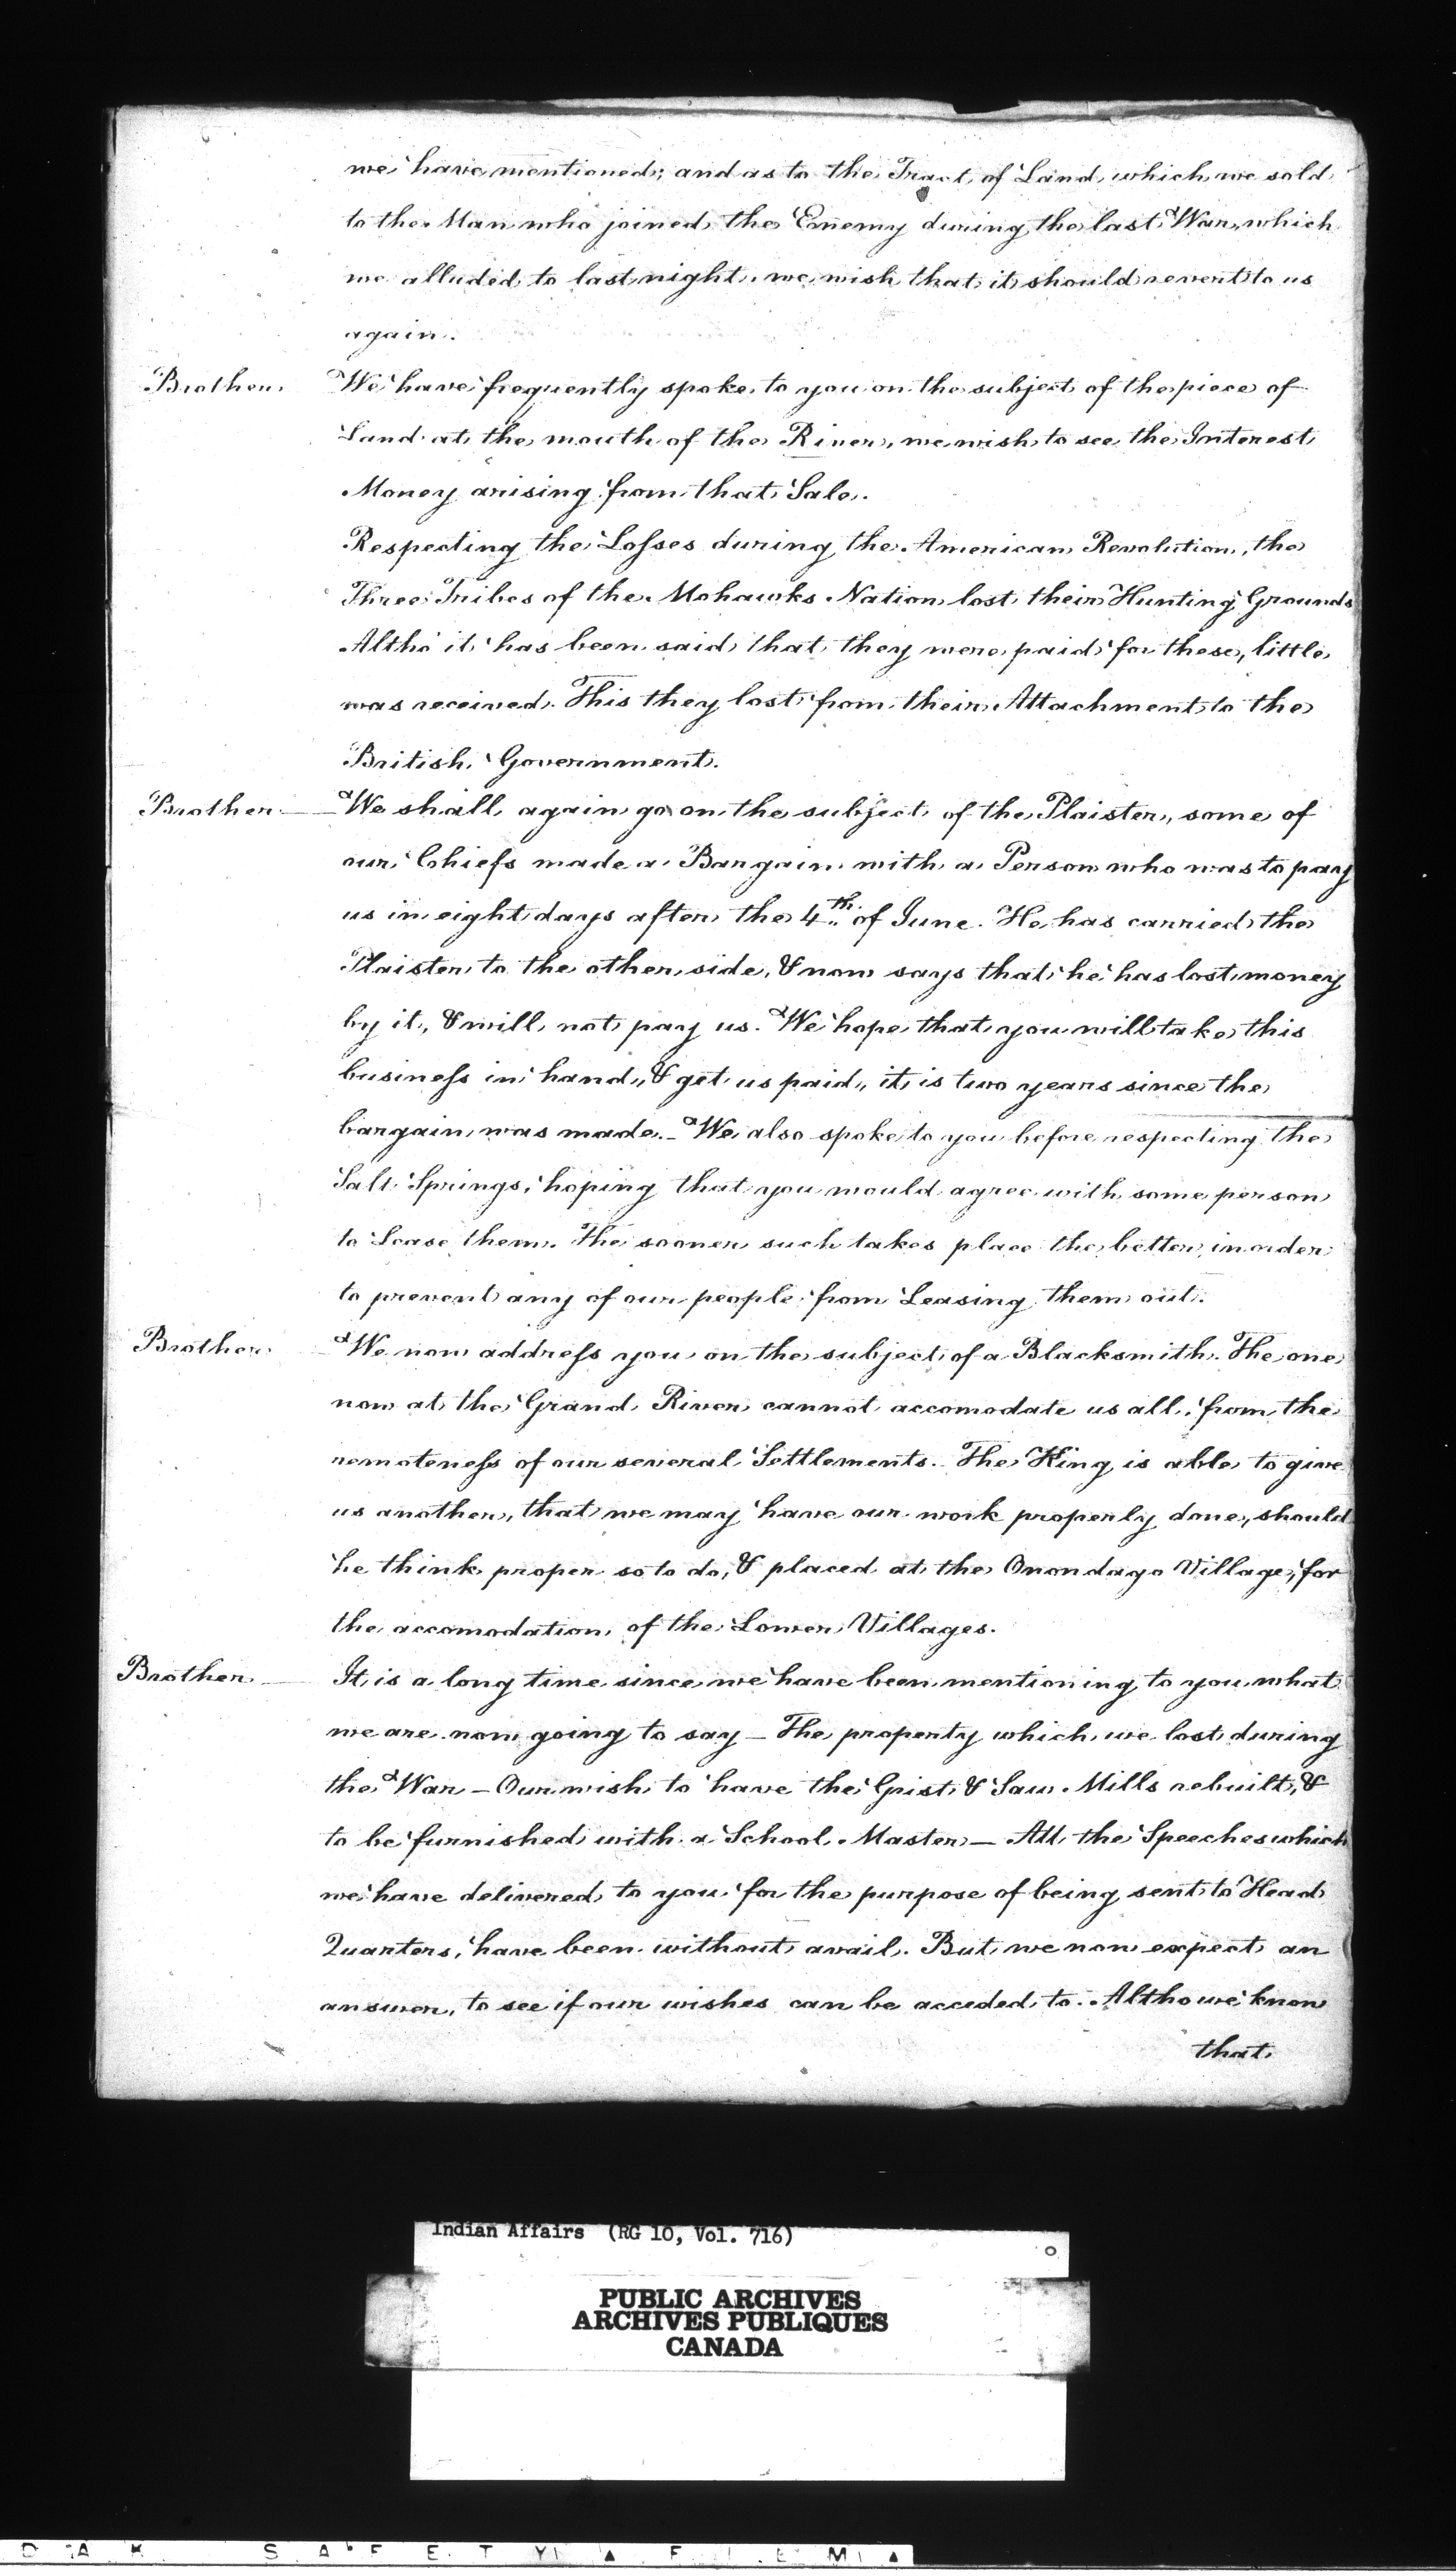 we have mentioned; and as to the Tract of Land, which we sold
to the Man who joined the Enemy during the last War, which
we alluded to last night, we wish that it should revert to us
again.
Brother. We have frequently spoke to you on the subject of the piece of
Land at the mouth of the River, we wish to see the Interest
Money arising from that Sale.
Respecting the Losses during the American Revolution, the
Three Tribes of the Mohawks Nation lost their Hunting Grounds
Altho' it has been said that they were paid for these, little
was received. This they lost from their Attachment to the
British Government.
Brother — We shall again go on the subject of the Plaister, some of
our Chiefs made a Bargain with a Person who was to pay
us in eight days after the 4th. of June. He has carried the
Plaister to the other side, & now says that he has lost money
by it, & will not pay us. We hope that you will take this
business in hand, & get us paid, it is two years since the
bargain was made. – We also spoke to you before respecting the
Salt Springs, hoping that you would agree with some person
to Lease them. The sooner such takes place the better, in order
to prevent any of our people from Leasing them out.
Brother We now address you on the subject of a Blacksmith. The one
now at the Grand River cannot accomodate us all, from the
remoteness of our several Settlements. The King is able to give
us another, that we may have our work properly done, should
he think proper so to do, & placed at the Onondago Village, for
the accomodation of the Lower Villages.
Brother — It is a long time since we have been mentioning to you what
we are now going to say – The property which we lost during
the War – Our wish to have the Grist & Saw Mills rebuilt, &
to be furnished with a School Master – All the Speeches which
we have delivered to you for the purpose of being sent to Head
Quarters, have been without avail. But we now expect an
answer, to see if our wishes can be acceded to. Altho we know
that
Indian Affairs (RG 10, Vol. 716)
PUBLIC ARCHIVES
ARCHIVES PUBLIQUES
CANADA